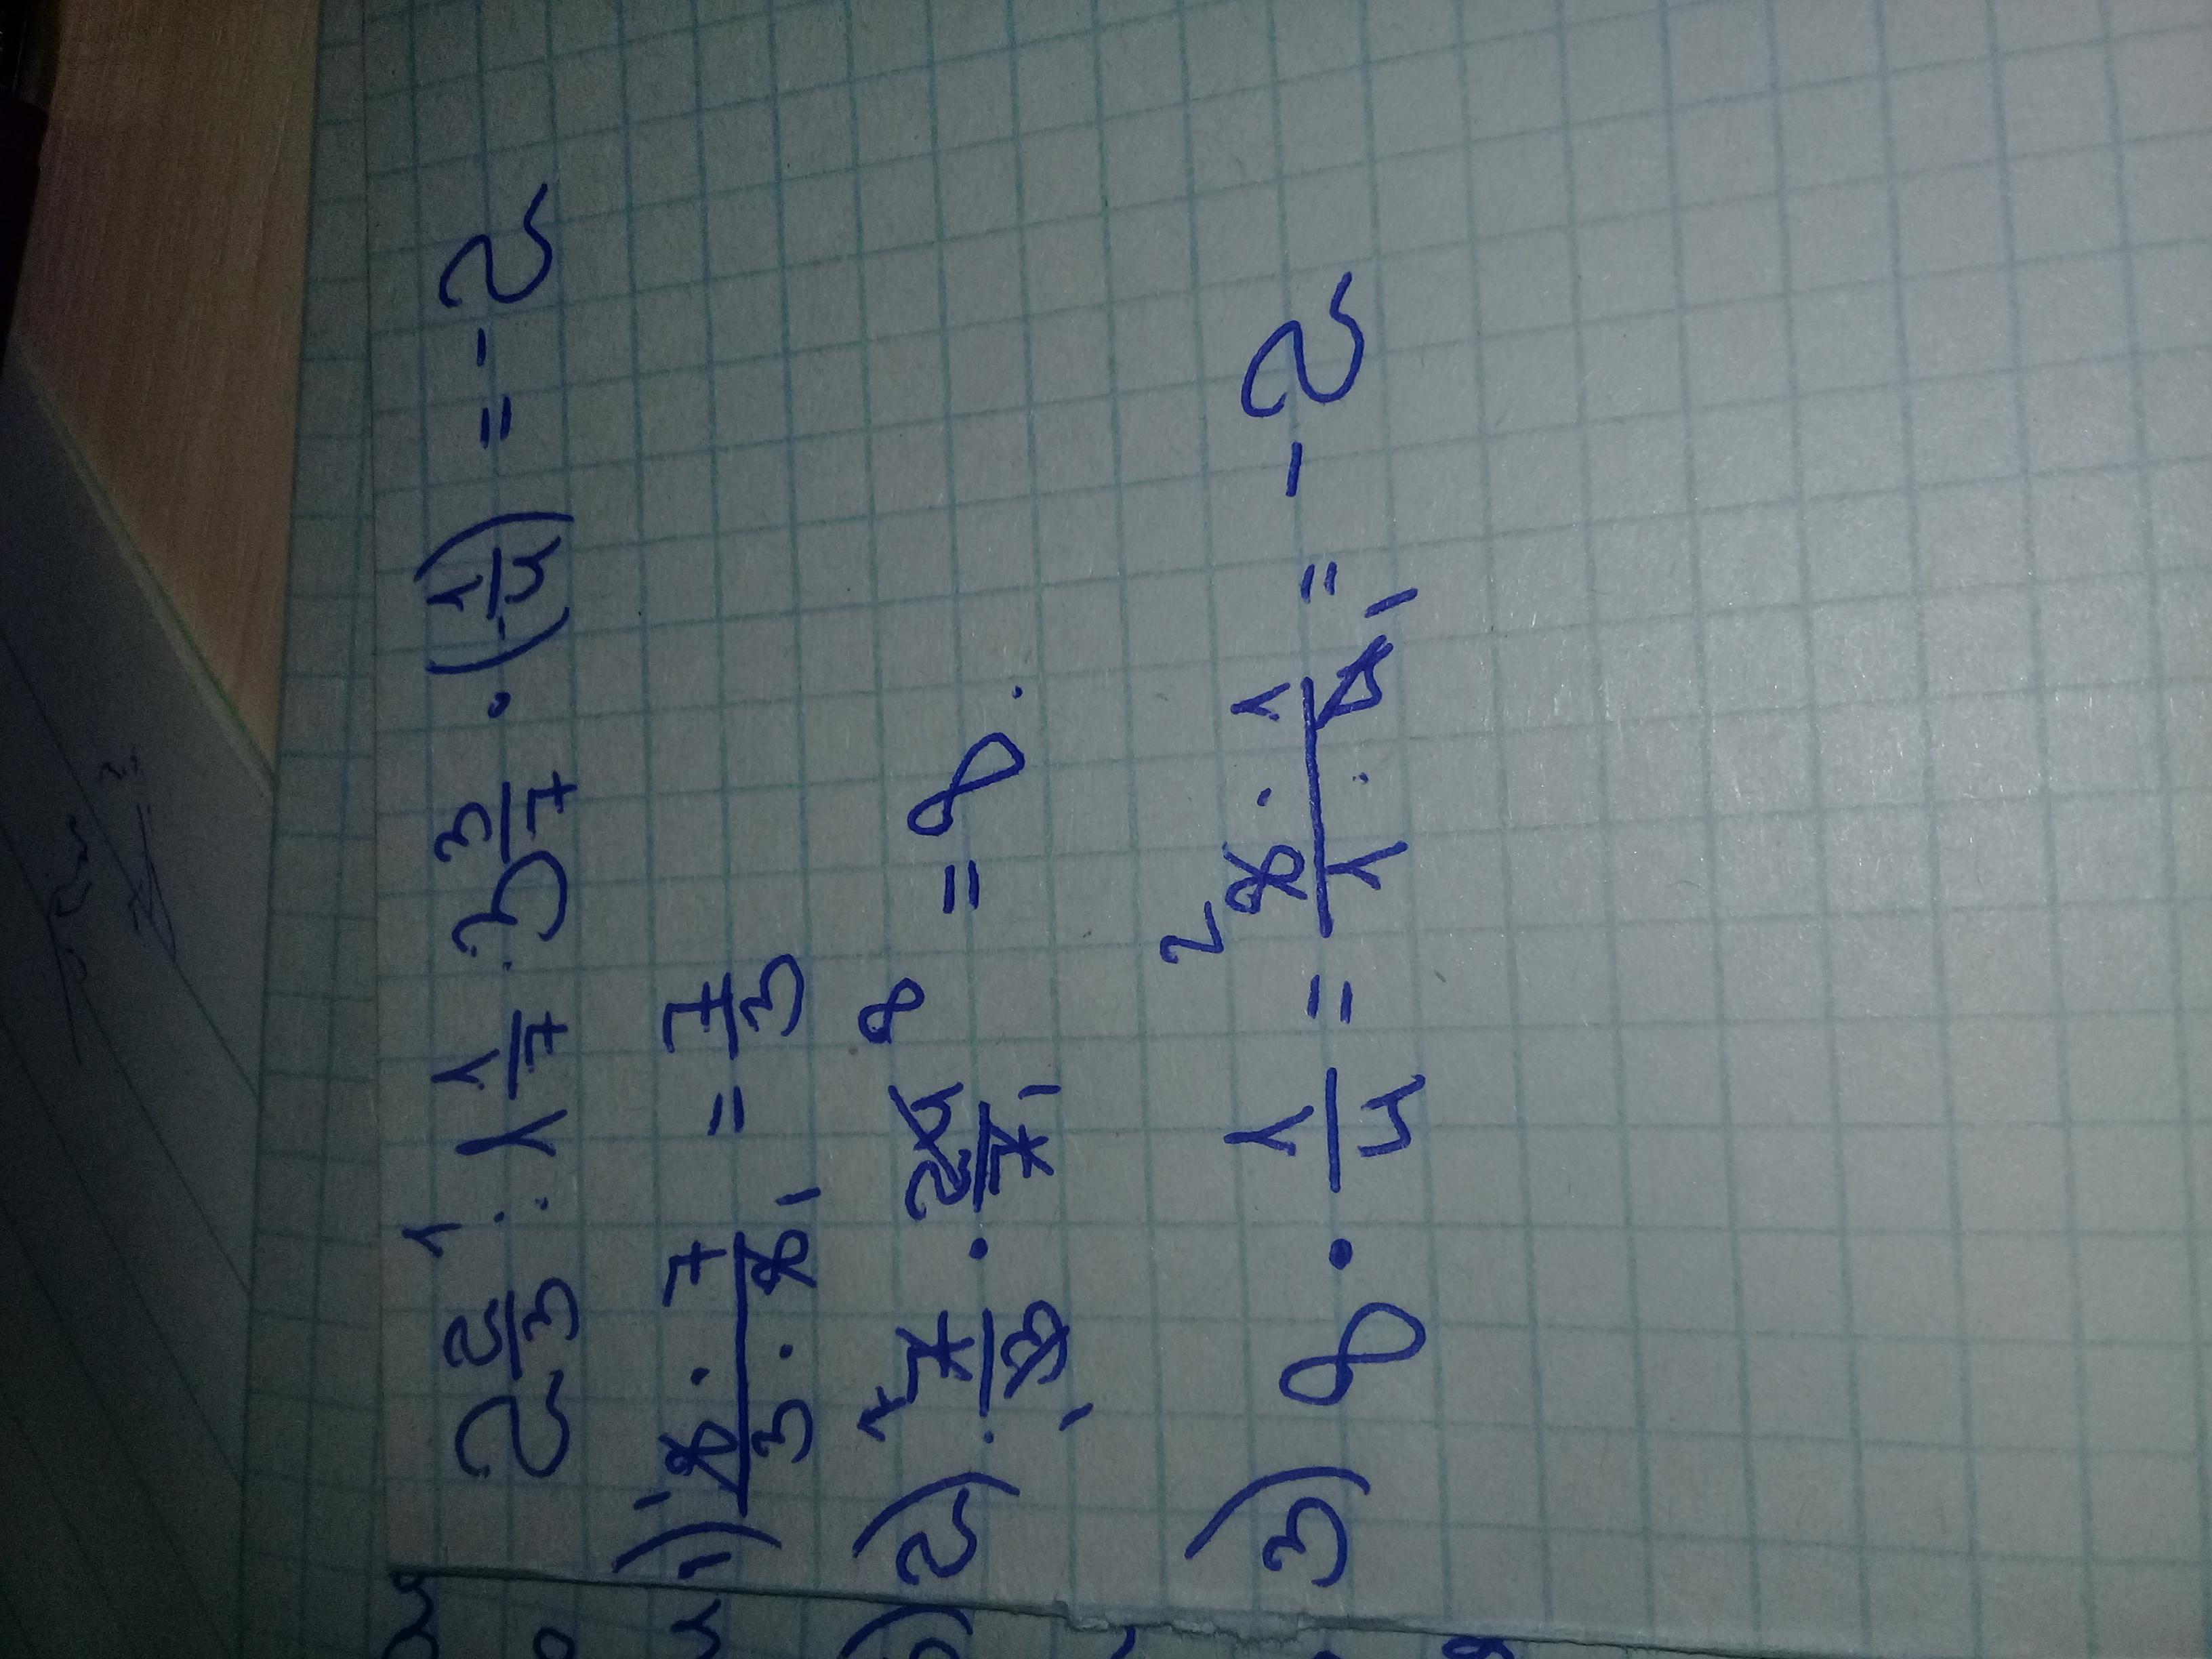 2 2/3 : 1 1/7 · 3 3/7 · (-1/4) = -2
1) 8 · 7 / 3 · 8 = 7/3
2) 7/3 · 24/7 = 8.
3) 8 · 1/4 = 8 · 1 / 1 · 4 = -2